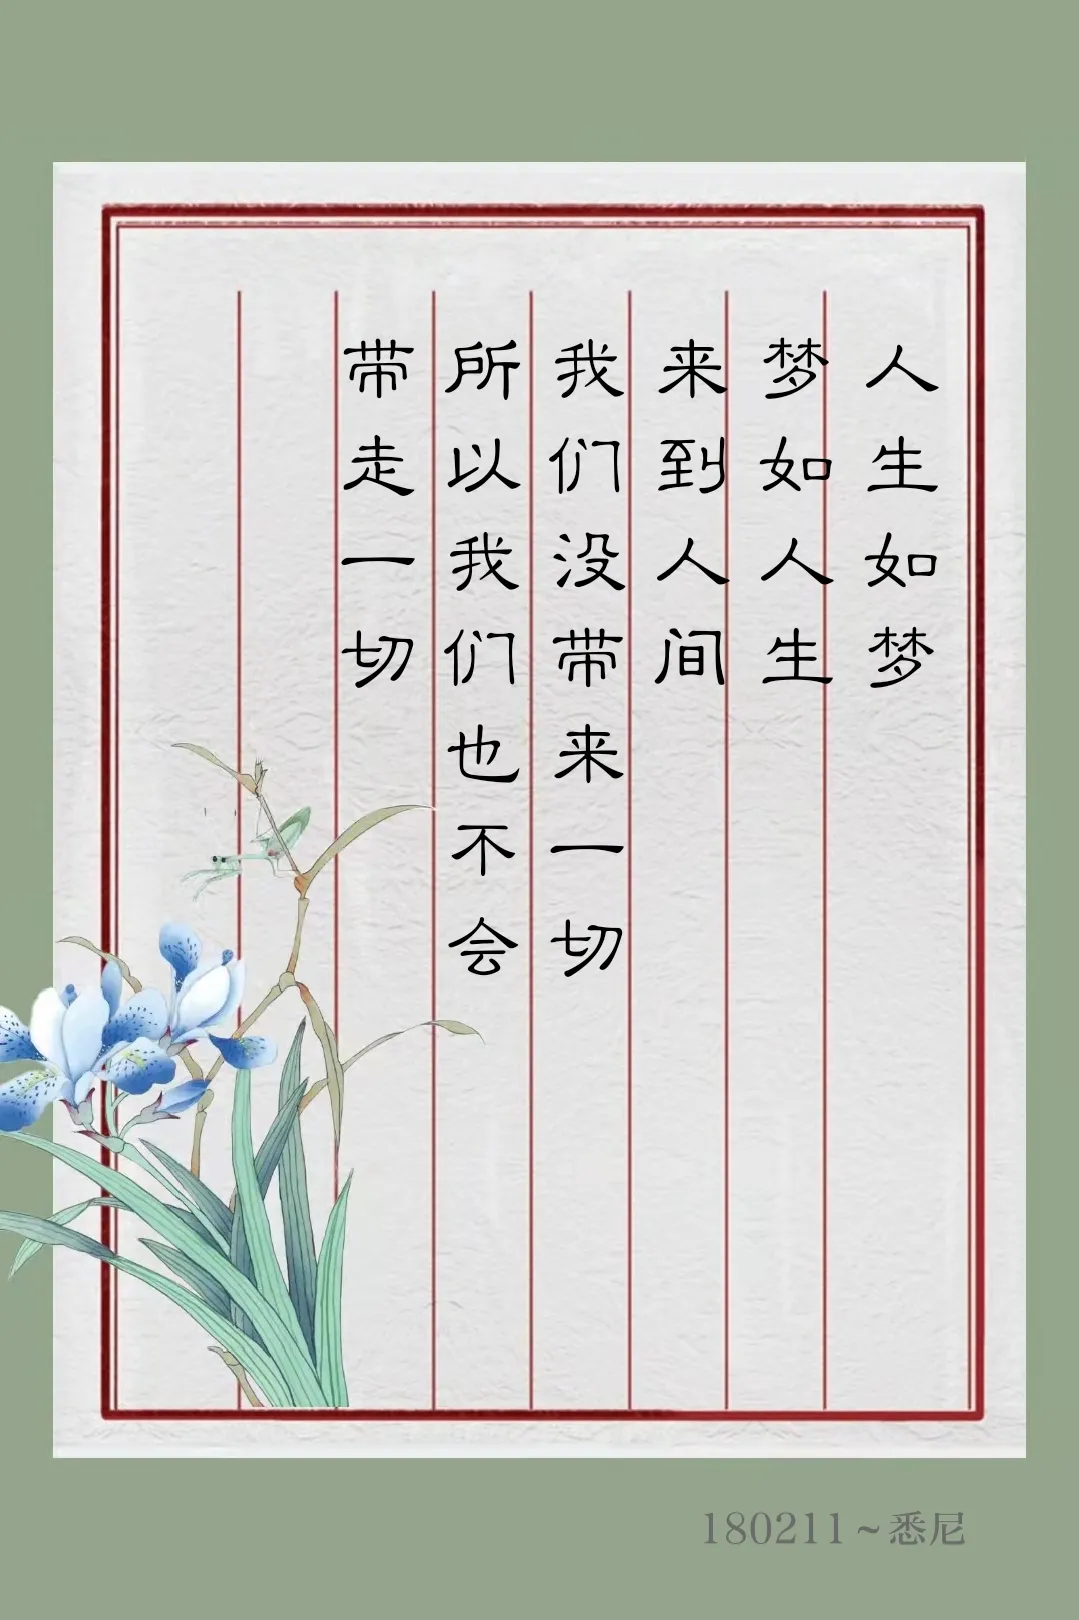 人生如梦
梦如人生
来到人间
我们没带来一切
所以我们也不会
带走一切
180211～悉尼